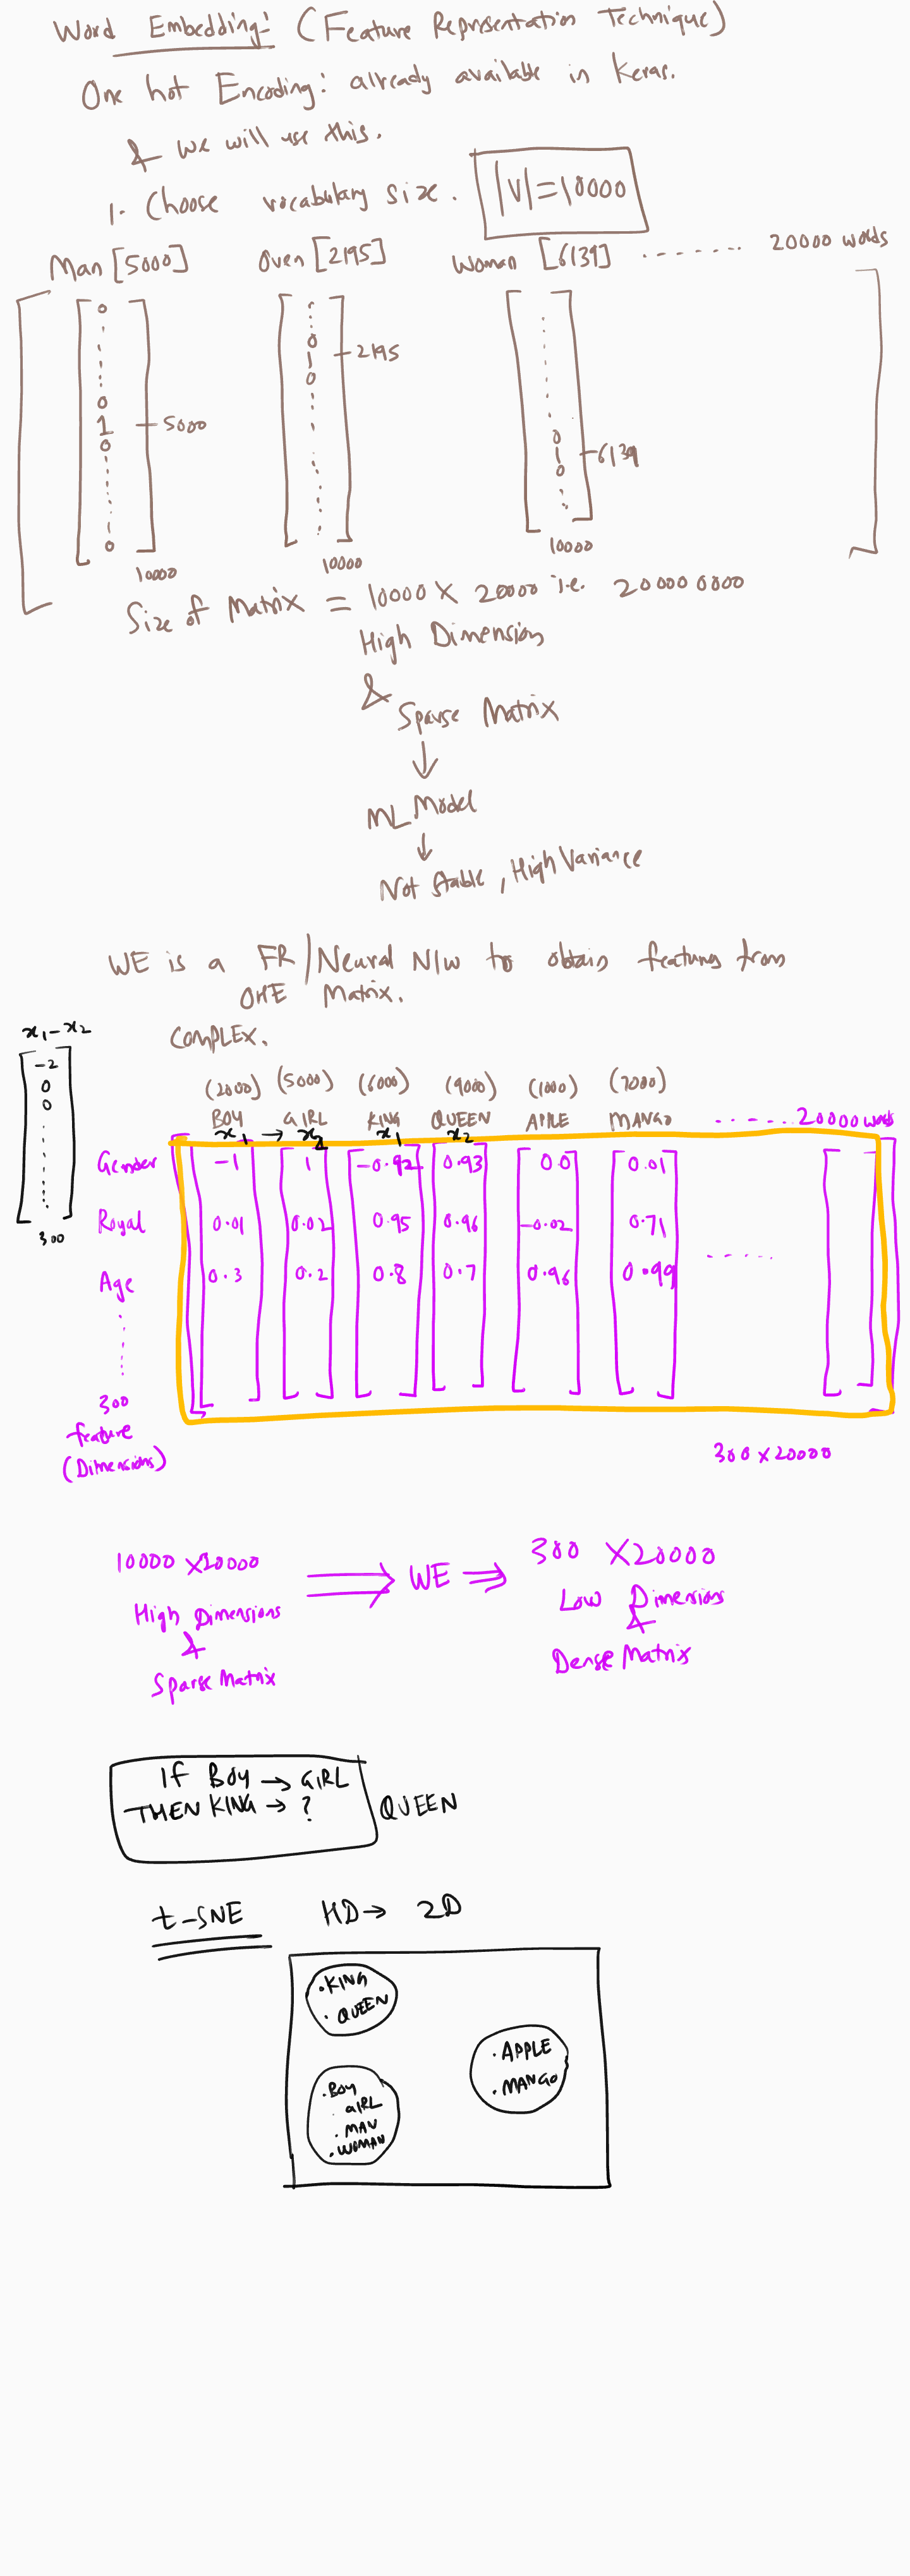 Word Embedding:- (Feature Representation Technique)
One hot Encoding: already available in Keras.
& we will use this.
1. Choose vocabulary size. |V|=10000
Man [5000] Oven [2195] Woman [6139] ....... 20000 words
0
0
1 5000
0
0
10000
0
1 2195
0
10000
0
1 6139
0
10000
Size of Matrix = 10000 X 20000 i.e. 200000000
High Dimension
&
Sparse Matrix
↓
ML Model
↓
Not Stable, High Variance
WE is a FR/Neural N/w to obtain features from
OHE Matrix.
COMPLEX.
x₁-x₂
-2
0
0
300
(2000) (5000) (6000) (9000) (1000) (7000)
BOY GIRL KING QUEEN APPLE MANGO ...... 20000 words
x₁ → x₂ x₁ x₂
Gender -1 1 -0.92 0.93 0.0 0.01
Royal 0.01 0.02 0.95 0.96 -0.02 0.71
Age 0.3 0.2 0.8 0.7 0.96 0.99 ......
300
feature
(Dimensions)
300 x 20000
10000 X20000 ⇒ WE ⇒ 300 X20000
High Dimensions
&
Sparse Matrix
Low Dimensions
&
Dense Matrix
If BOY → GIRL
THEN KING → ? QUEEN
t-SNE HD → 2D
.KING
.QUEEN
.APPLE
.MANGO
.BOY
.GIRL
.MAN
.WOMAN